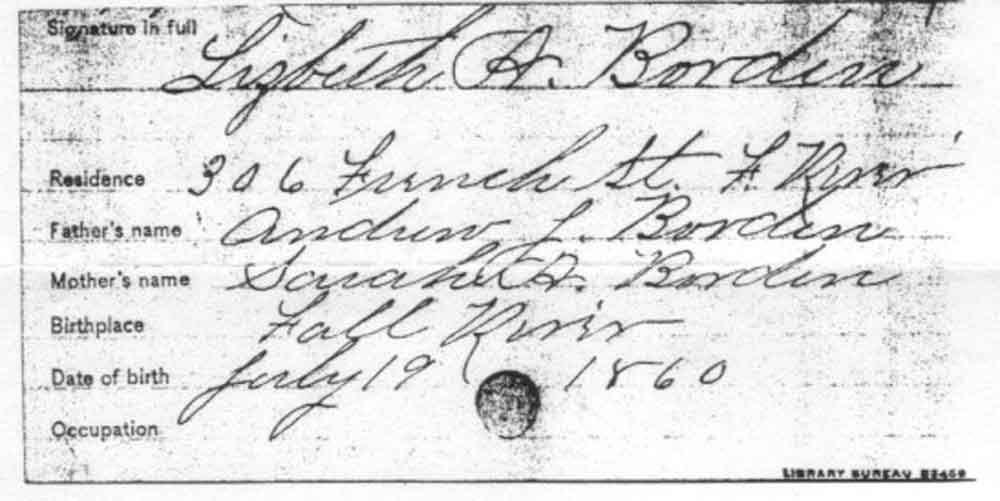 Signature in full
Lizbeth A. Borden
Residence 306 French St. F. River
Father's name Andrew J. Borden
Mother's name Sarah A. Borden
Birthplace Fall River
Date of birth July 19 1860
Occupation
LIBRARY BUREAU